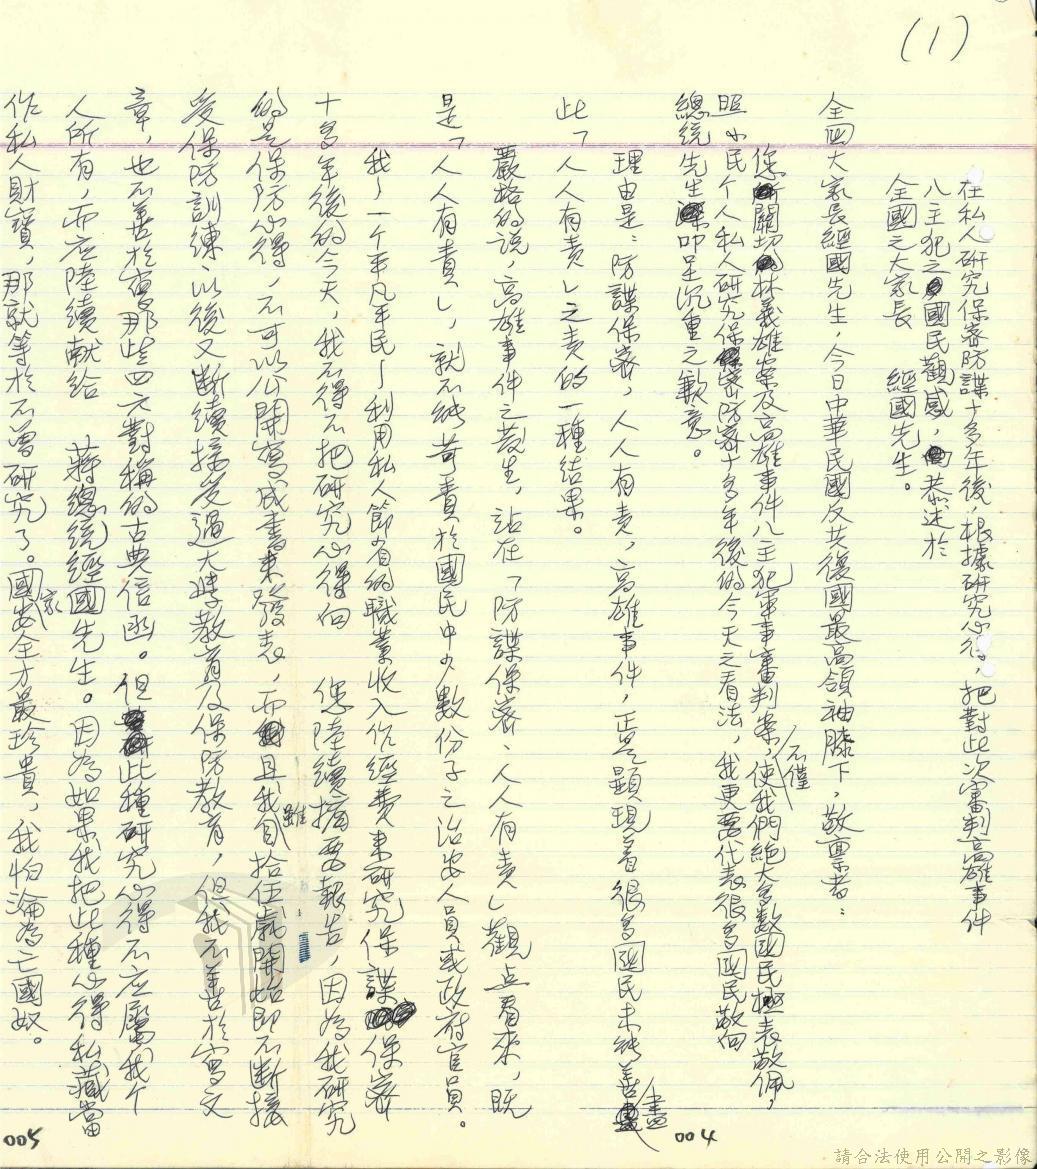 (1)
在私人研究保密防諜十多年後，根據研究心得，把對此次審判高雄事件
八主犯之國民觀感，恭述於
全國之大家長　經國先生。
全國大家長經國先生，今日中華民國反共復國最高領袖膝下，敬禀者：
您關切林義雄案及高雄事件八主犯軍事審判案，不僅使我們絕大多數國民極表敬佩，
照小民个人私人研究保密防諜十多年後的今天之看法，我更要代表很多國民敬向
總統先生叩呈沉重之歉意。
理由是：防諜保密，人人有責，高雄事件，正是顯現着很多國民未能善盡
此「人人有責」之責的一種結果。
嚴格的說，高雄事件之發生，站在「防諜保密、人人有責」觀点看來，既
是「人人有責」，就不能苛責於國民中少數份子之治安人員或政府官員。
我～一个平凡平民～利用私人節省的職業收入作經費來研究保諜保密
十多年後的今天，我不得不把研究心得向　您陸續摘要報告，因為我研究
的是保防心得，不可以公開寫成書來發表，而且我雖自拾伍歲開始即不斷接
受保防訓練、以後又斷續接受過大學教育及保防教育，但我不善於寫文
章，也不善於寫那些四六對稱的古典信函。但此種研究心得不应屬我个
人所有，而应陸續献給　蔣總統經國先生。因為如果我把此種心得私藏當
作私人財寶，那就等於不曾研究了。國家安全才最珍貴，我怕淪為亡國奴。
005
004
請合法使用公開之影像